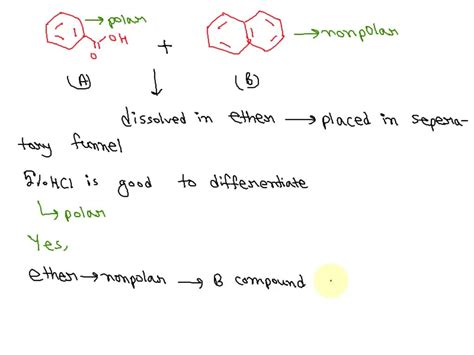 →polar
OH
O
+
→nonpolar
(A)
(B)
dissolved in ether → placed in sepera-
tory funnel
5%HCl is good to differentiate
↳ polar
Yes,
ether → nonpolar → B compound